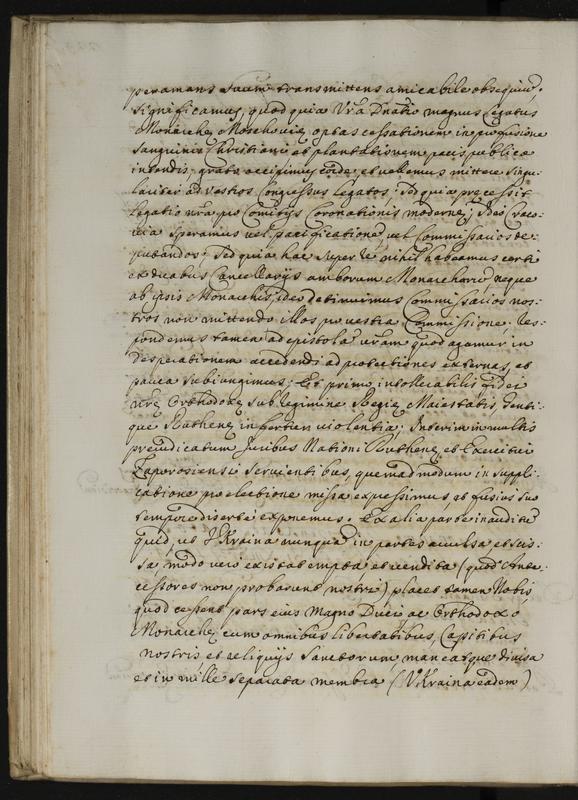 peramans suum transmittens amicabile obsequiũ.
Significamus, quod quia Vr̃a Dnãtio magnus Legatus
Monarchę Moschovię optas cessationem in profusione
sanguinis Christiani et plantationem pacis publicę
intendis, grato accipimus corde, et vellemus mittere singu-
lariter ad vestros Congressus legatos, sed quia pręcessit
Legatio nr̃a pro Comitijs Coronationis modernę; Ideo Craco-
via speramus vel pacificationẽ, vel Commissarios de-
putandos; sed quia hac super re nihil habeamus certi
ex ducabus Cancellarijs amborum Monarcharũ, neque
ab ipsis Monarchis, ideo detinuimus Commissarios nos-
tros non mittendo illos pro vestra Commissione. Res-
pondemus tamen ad epistolã vr̃am quod agamur in
desperationem accedendi ad protectiones externas, et
pauca subiungimus; Et primo intollerabilis, fidei
nr̃ę Orthodoxę sub regimine Regię Maiestatis, Genti-
que Ruthenę infertur violentia; Interim in multis
pręiudicatum Juribus Nationi Ruthenę, et Exercitui
Zaporosiensi Servientibus, quemadmodum in suppli-
catione pro electione missa expressimus, et fusius suo
tempore diserte exponemus. Ex alia parte inauditũ
quid, ut Vkraina nunquã in partes avulsa et scis-
sa modo vero existat empta et vendita (quod Ante-
cessores non probarunt nostri) placet tamen Nobis
quod cesserit pars eius Magno Duci ac Orthodoxo
Monarchę, cum omnibus libertatibus, Capitibus
nostris et reliquijs Sanctorum maneatque divisa
et in mille separata membra (Vkraina eadem)